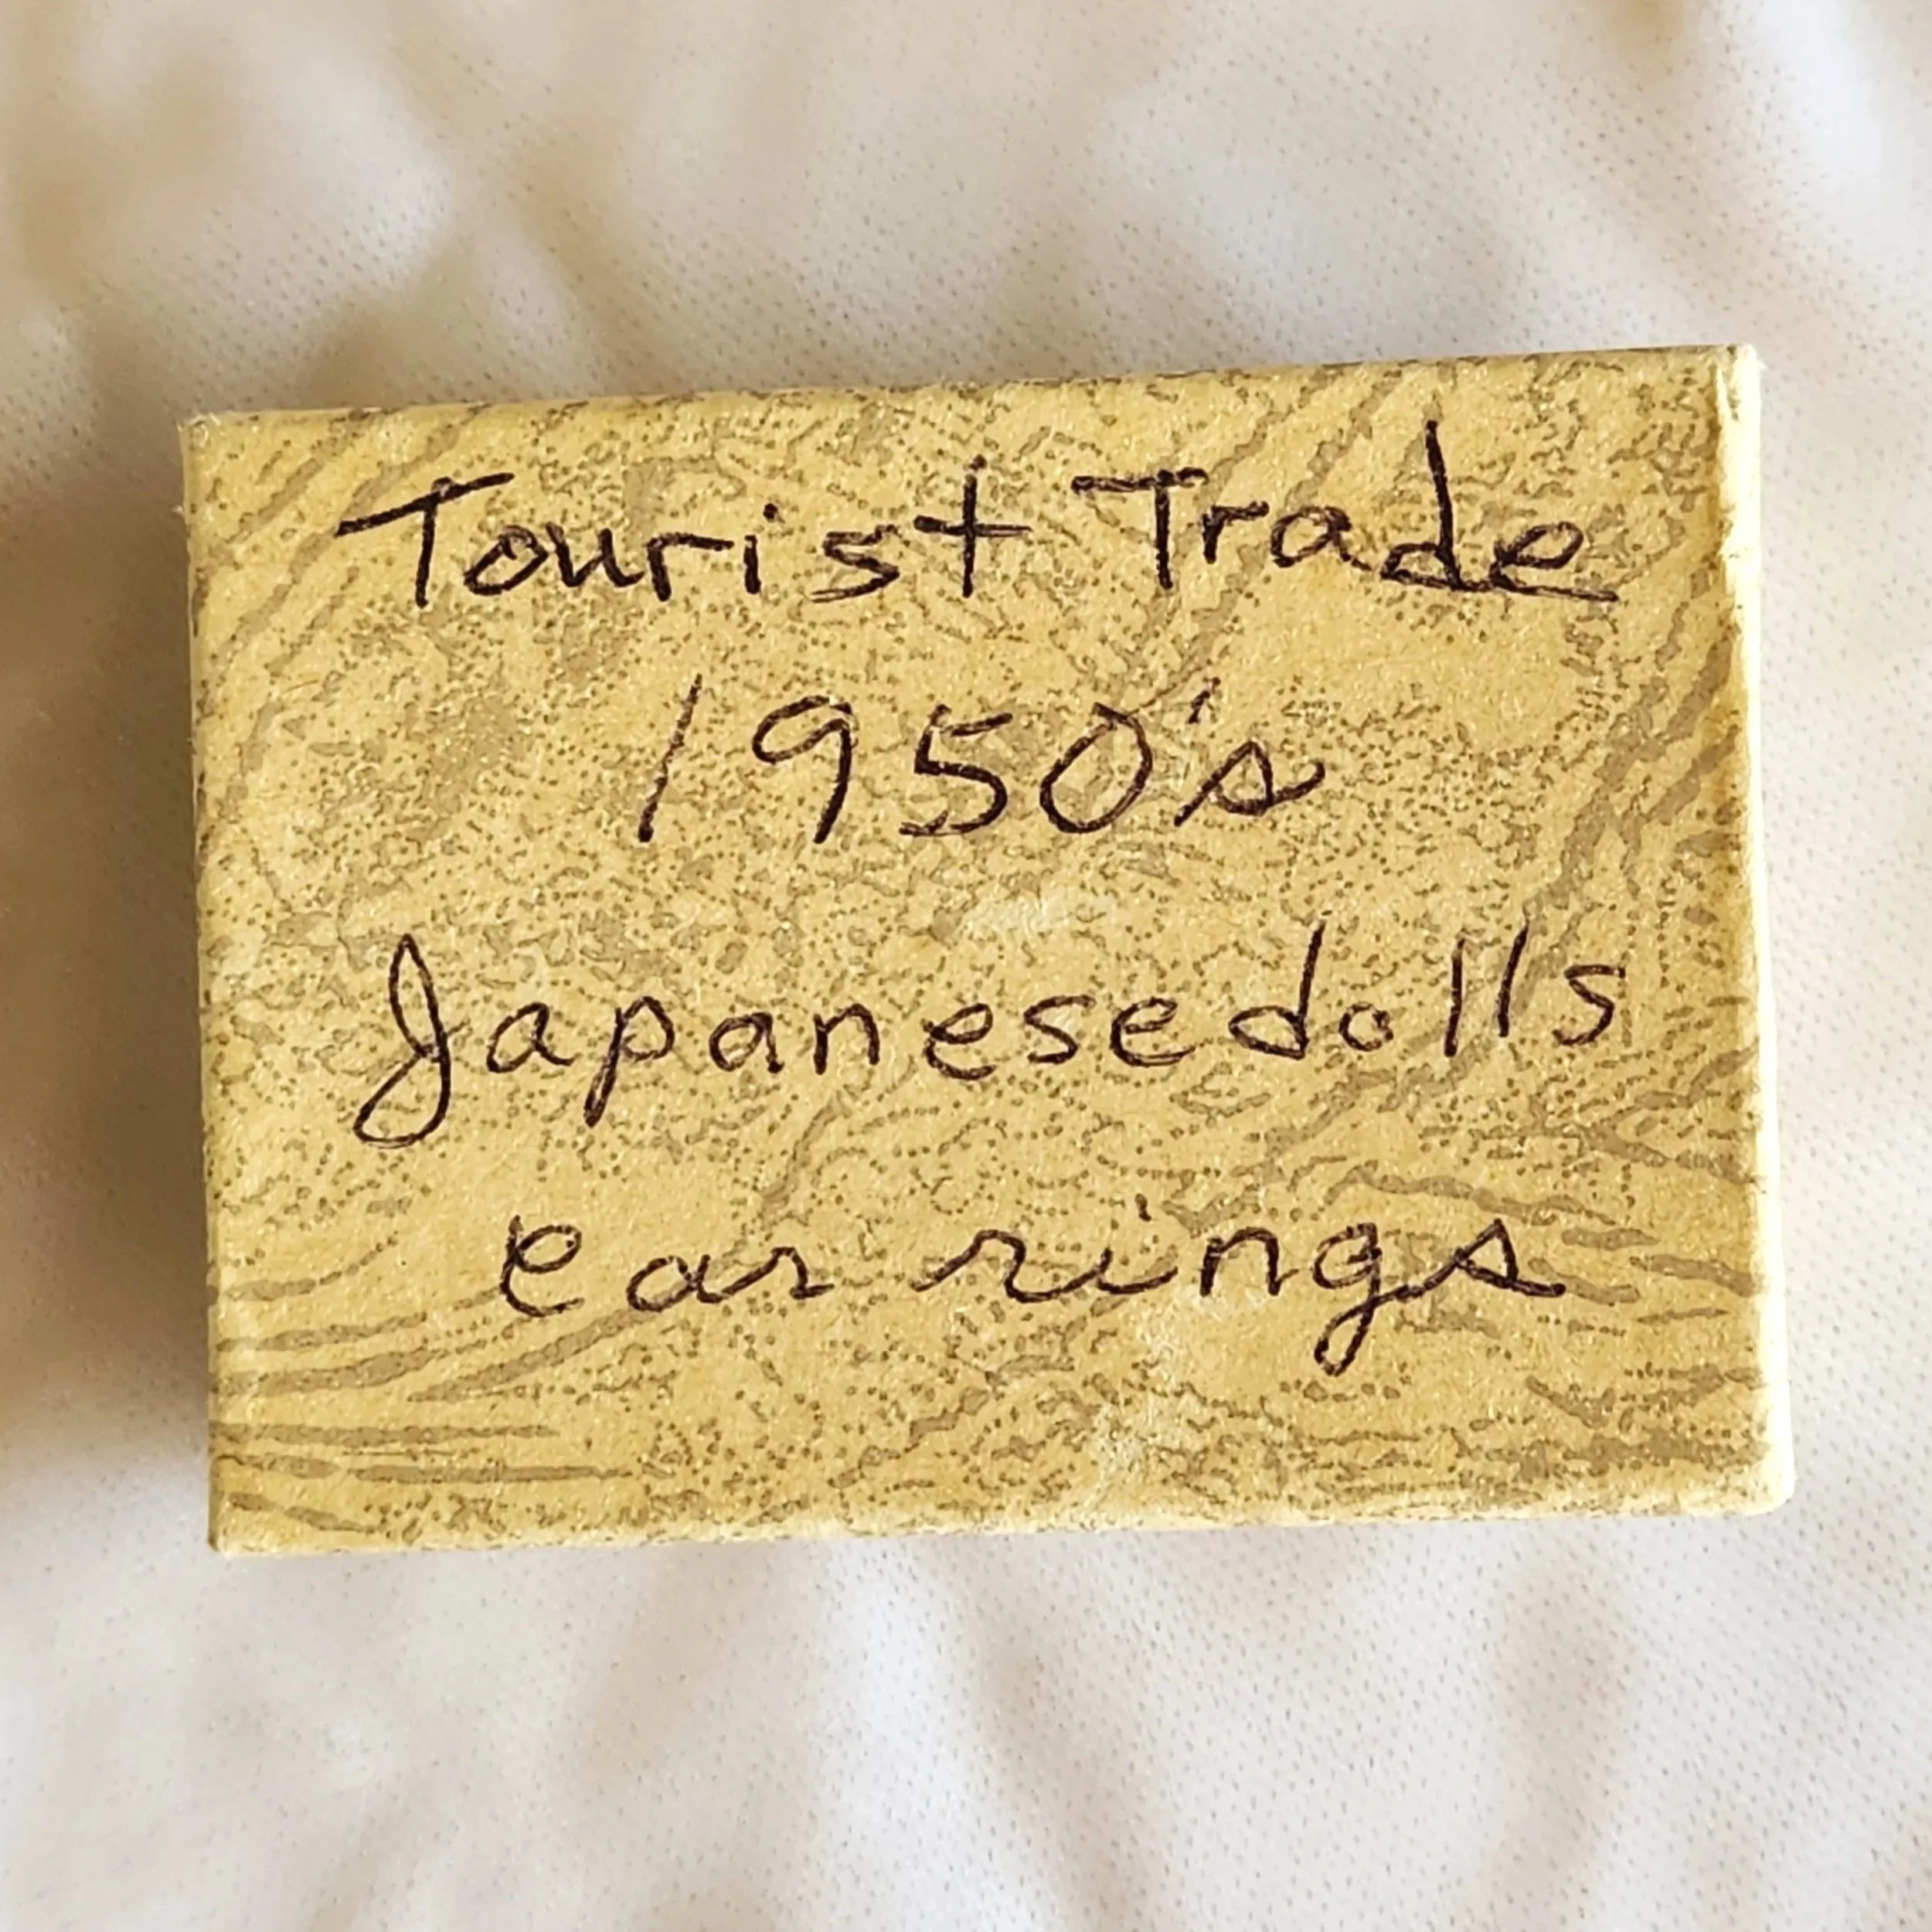 Tourist Trade
1950's
Japanese dolls
ear rings